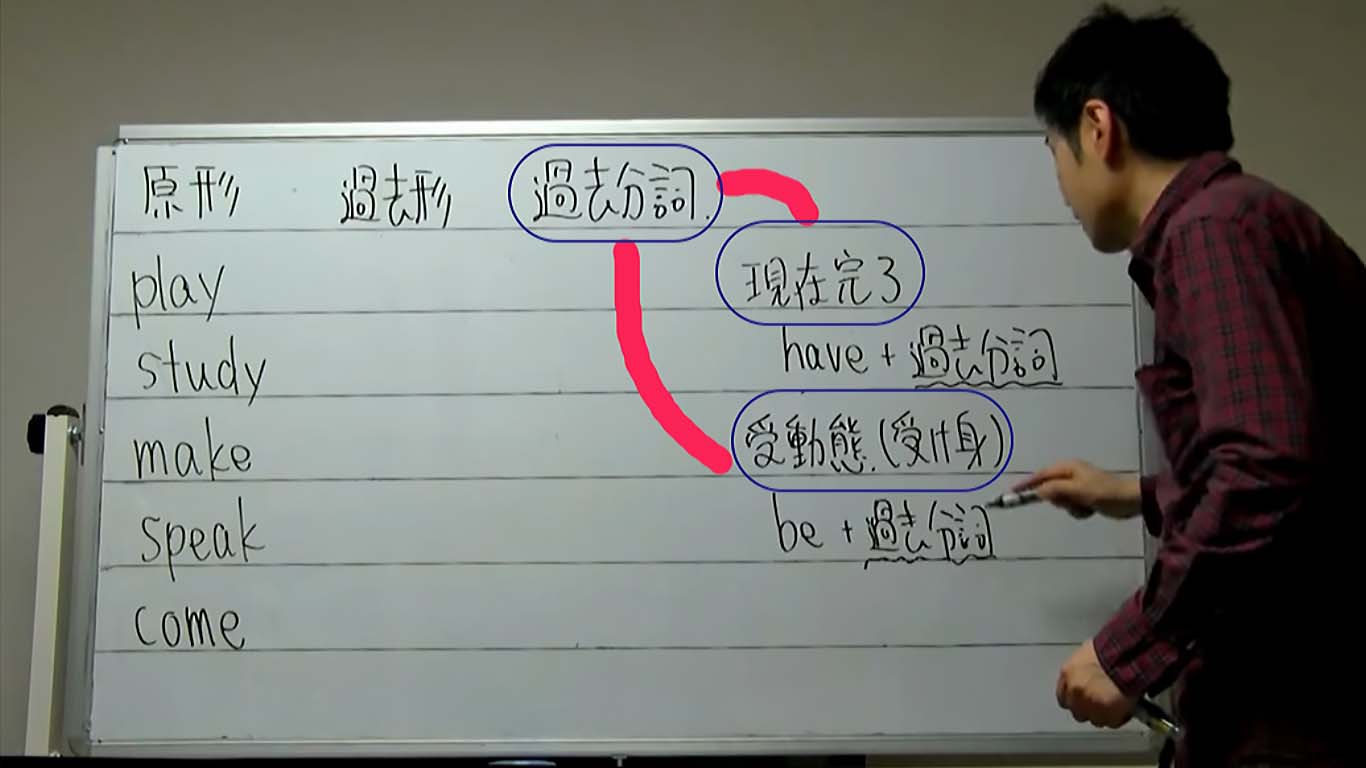 原形 過去形 過去分詞
play
現在完了
study
have + 過去分詞
make
受動態(受け身)
speak
be + 過去分詞
come